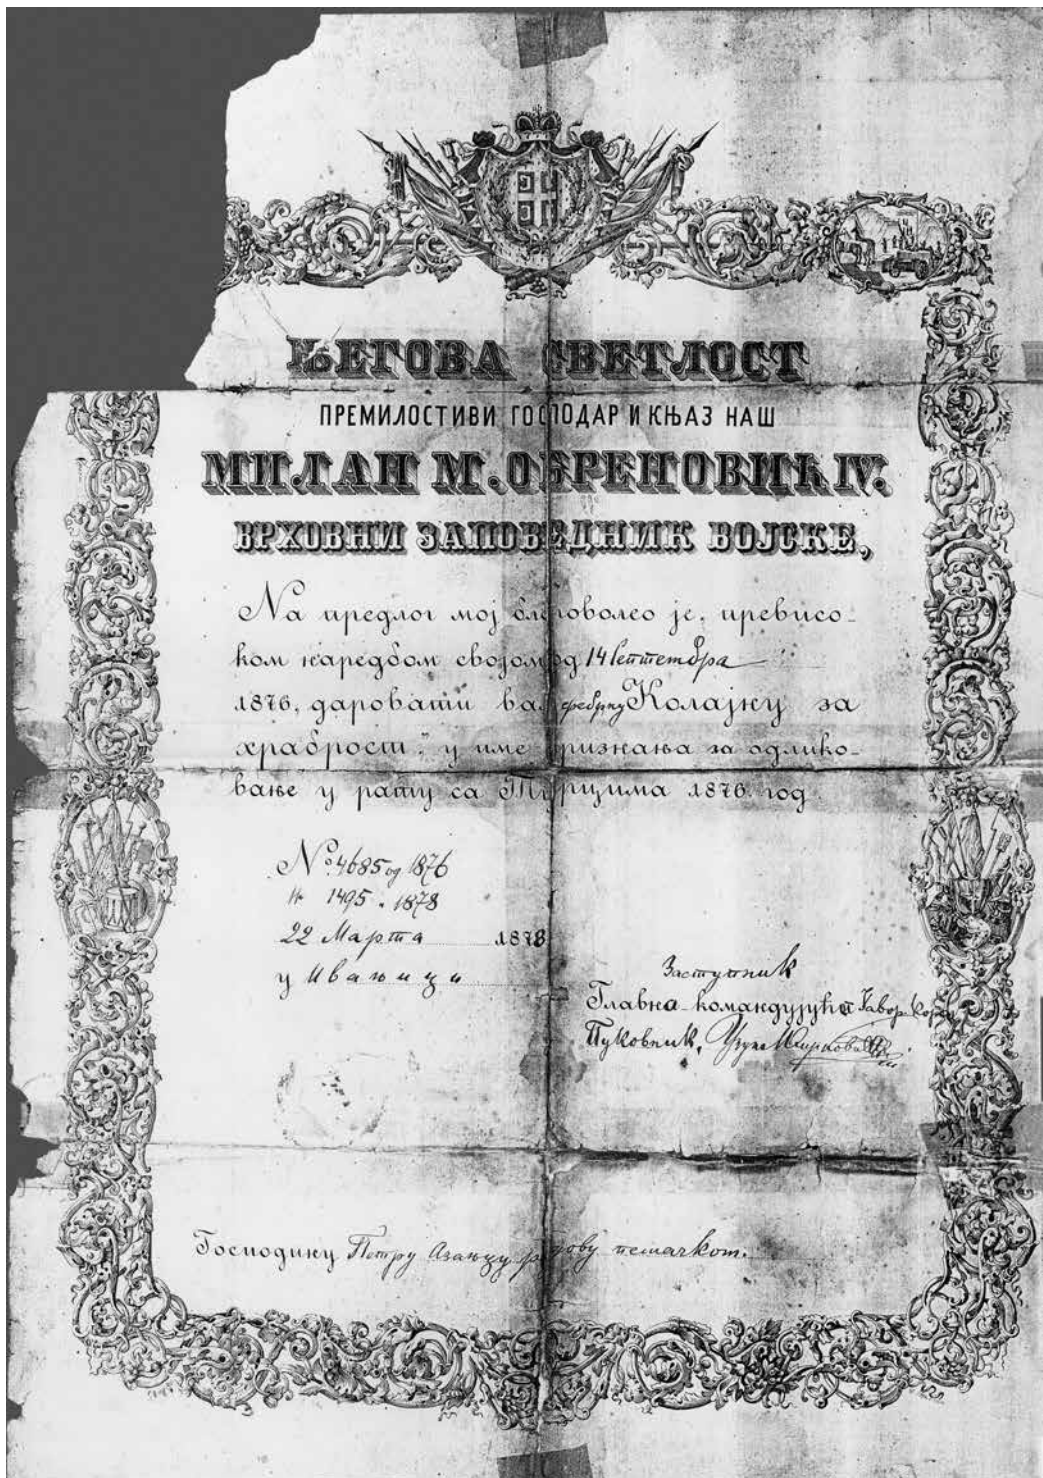 ЊЕГОВА СВЕТЛОСТ
ПРЕМИЛОСТИВИ ГОСПОДАР И КЊАЗ НАШ
МИЛАН М. ОБРЕНОВИЋ IV.
ВРХОВНИ ЗАПОВЕДНИК ВОЈСКЕ,
На предлог мој благоволео је, превисо-
ком наредбом својом од 14 Септембра
1876, даровати вам сребрну Колајну за
храброст" у име признања за одлико-
вање у рату са Турцима 1876. год.
№ 4685 од 1876
№ 1495 " 1878
22 Марта 1878
у Ивањици
Заступник
Главно-командујућег Јавор. Кора
Пуковник,
Господину Петру редову пешачком.